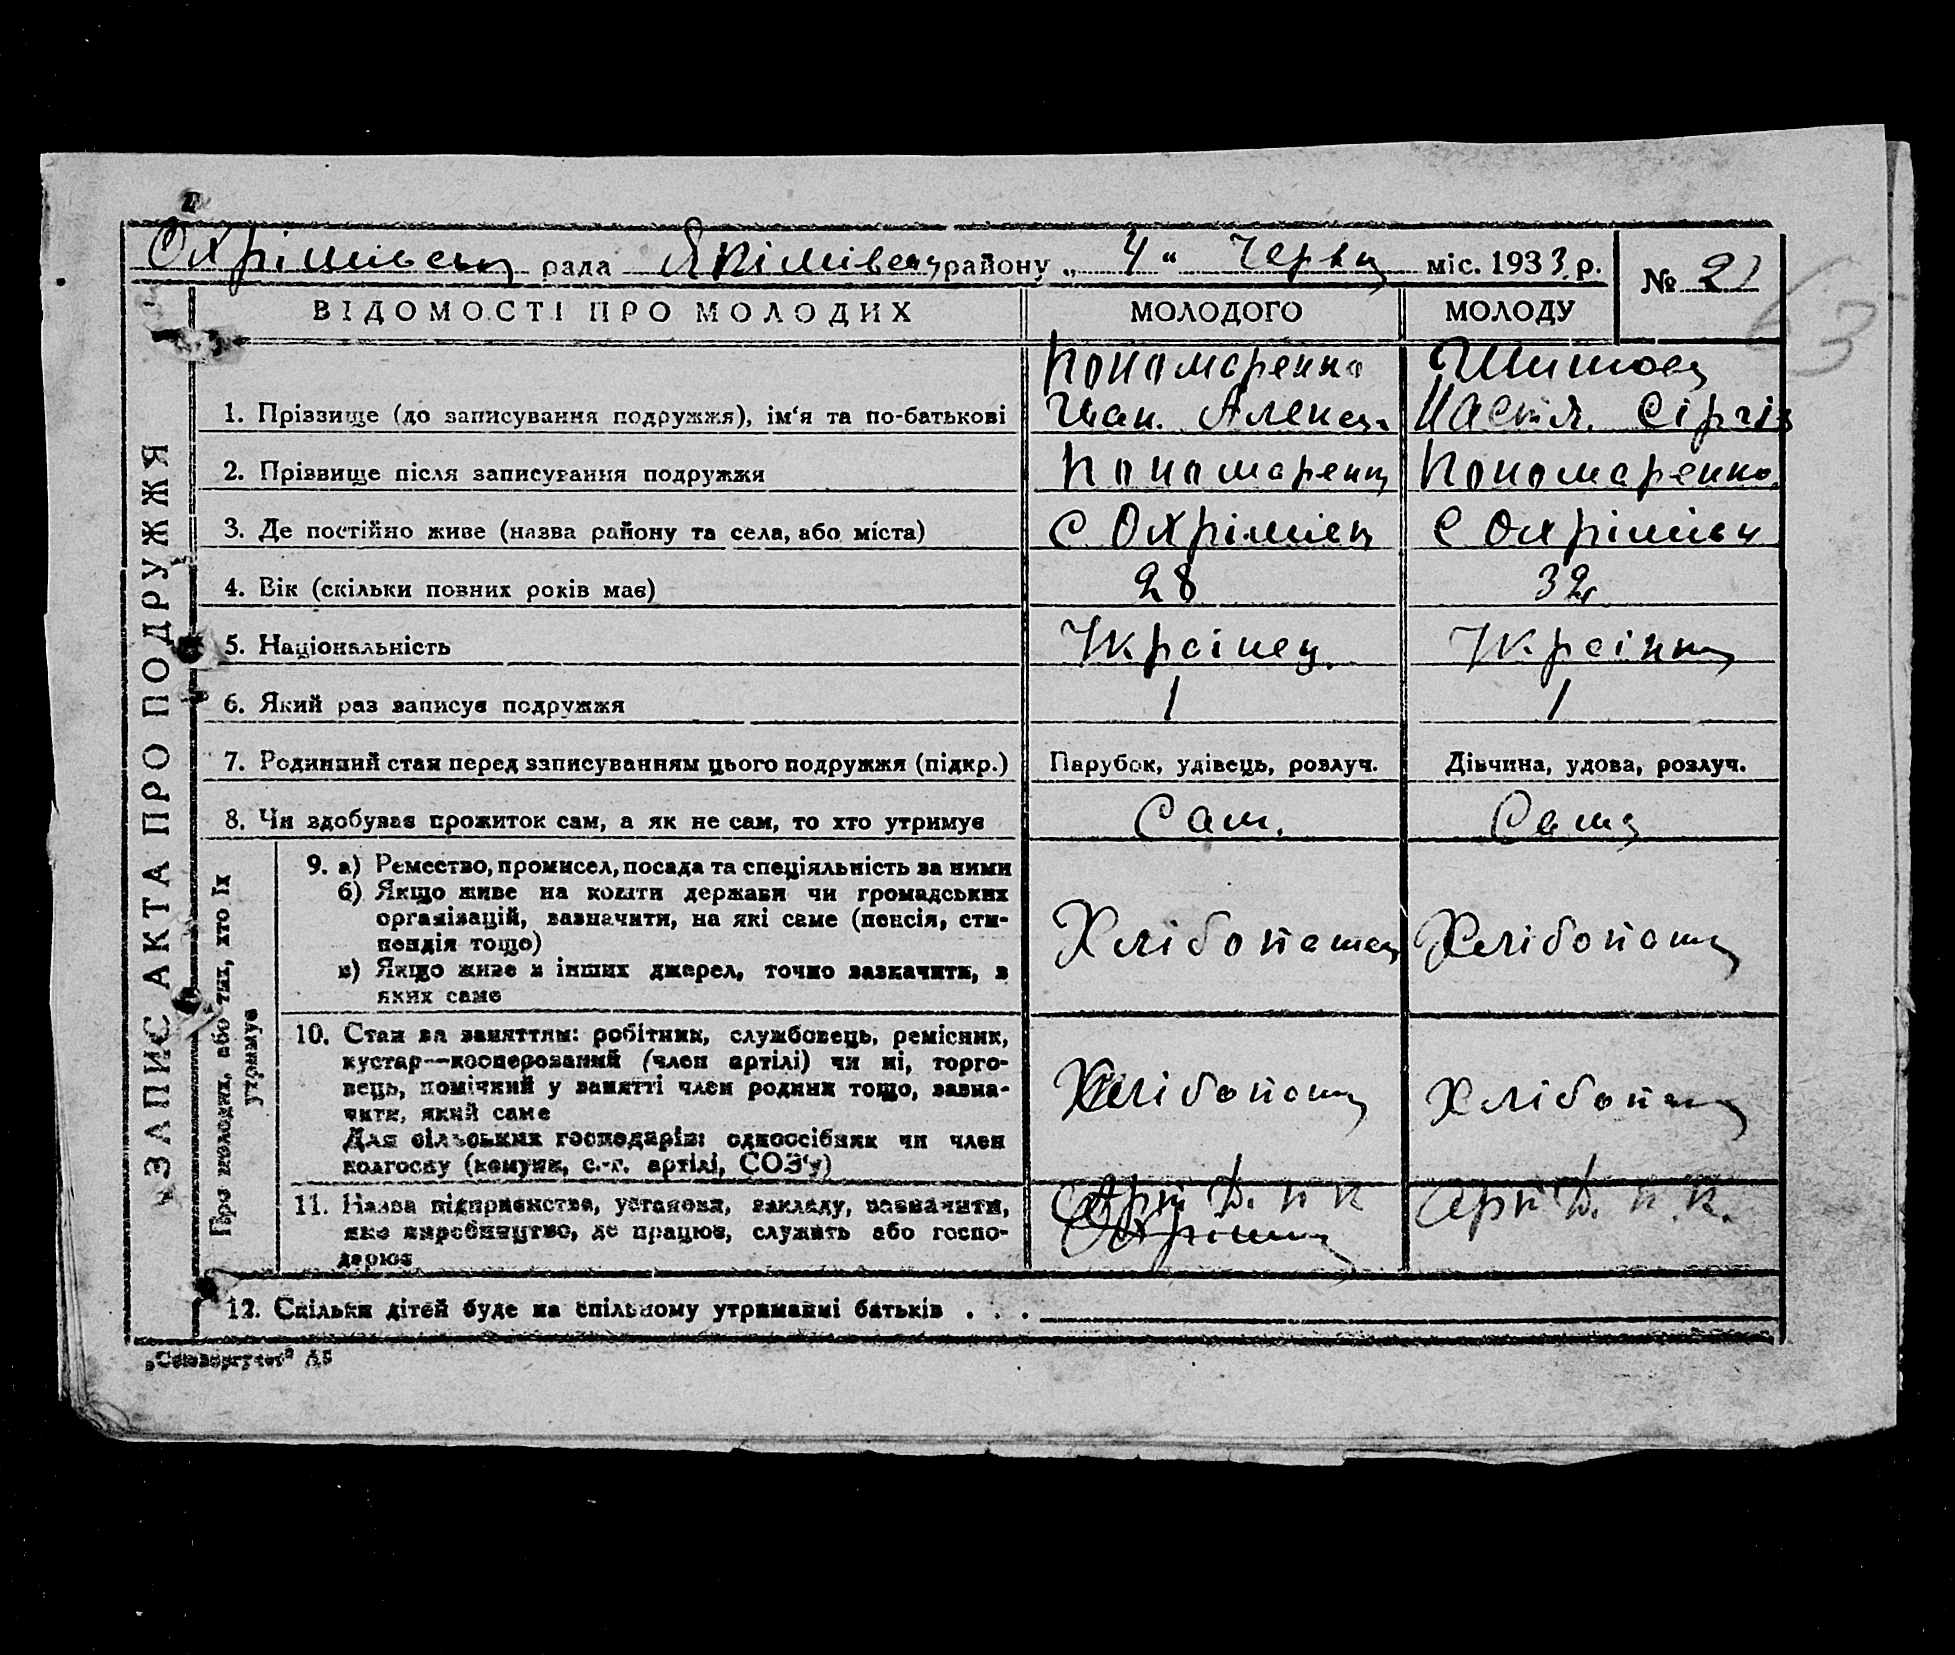 Охрімівська рада Якімівську району „ 4 “ Червня міс. 1933 р.
№ 21
63
ВІДОМОСТІ ПРО МОЛОДИХ МОЛОДОГО МОЛОДУ
Пономаренко
Іван. Алекса.
Настя. Сіргів
1. Прізвище (до записування подружжя), ім‘я та по-батькові
2. Прізвище після записування подружжя Пономаренко Пономаренко.
3. Де постійно живе (назва району та села, або міста) с Охрімівка с Охрімівка
4. Вік (скільки повних років має) 28 32
5. Національність Украінец. Украінка
6. Який раз записує подружжя 1 1
7. Родинний стан перед записуванням цього подружжя (підкр.) Парубок, удівець, розлуч. Дівчина, удова, розлуч.
8. Чи здобуває прожиток сам, а як не сам, то хто утримує Сам. Сама
ЗАПИС АКТА ПРО ПОДРУЖЖЯ
Про молодих, або тих, хто їх
утримує
9. а) Ремество, промисел, посада та спеціяльність за ними
б) Якщо живе на кошти держави чи громадських
організацій, зазначити, на які саме (пенсія, сти-
пендія тощо)
в) Якщо живе з інших джерел, точно зазначити, з
яких саме
Хлібопашец Хлібопашец
10. Стан за заняттям: робітник, службовець, ремісник,
кустар—кооперований (член артілі) чи ні, торго-
вець, помічний у занятті член родини тощо, зазна-
чити, який саме
Для сільських господарів: одноосібник чи член
колгоспу (комуни, с.-г. артілі, СОЗ‘у)
Хлібопаш Хлібопаш
11. Назва підприємства, установи, закладу, зазначити,
яке виробництво, де працює, служить або госпо-
дарює
Арт Д. п к Сарт Д. п. к.
12. Скільки дітей буде на спільному утриманні батьків . . .
„Союзоргучет“ А5